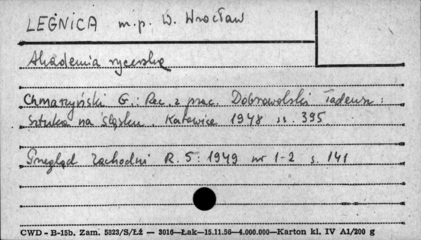 LEGNICA m.p. W. Wrocław
Akademia rycerska
Chmarzyński G.: Rec. z prac. Dobrowolski Tadeusz:
Sztuka na Śląsku. Katowice 1948 s. 395.
Przegląd Zachodni R. 5: 1949 nr 1-2 s. 141
CWD - B-15b, Zam. 5323/S/Łź — 3016—Łak—15.11.56—4.000.000—Karton kl. IV A1/200 g